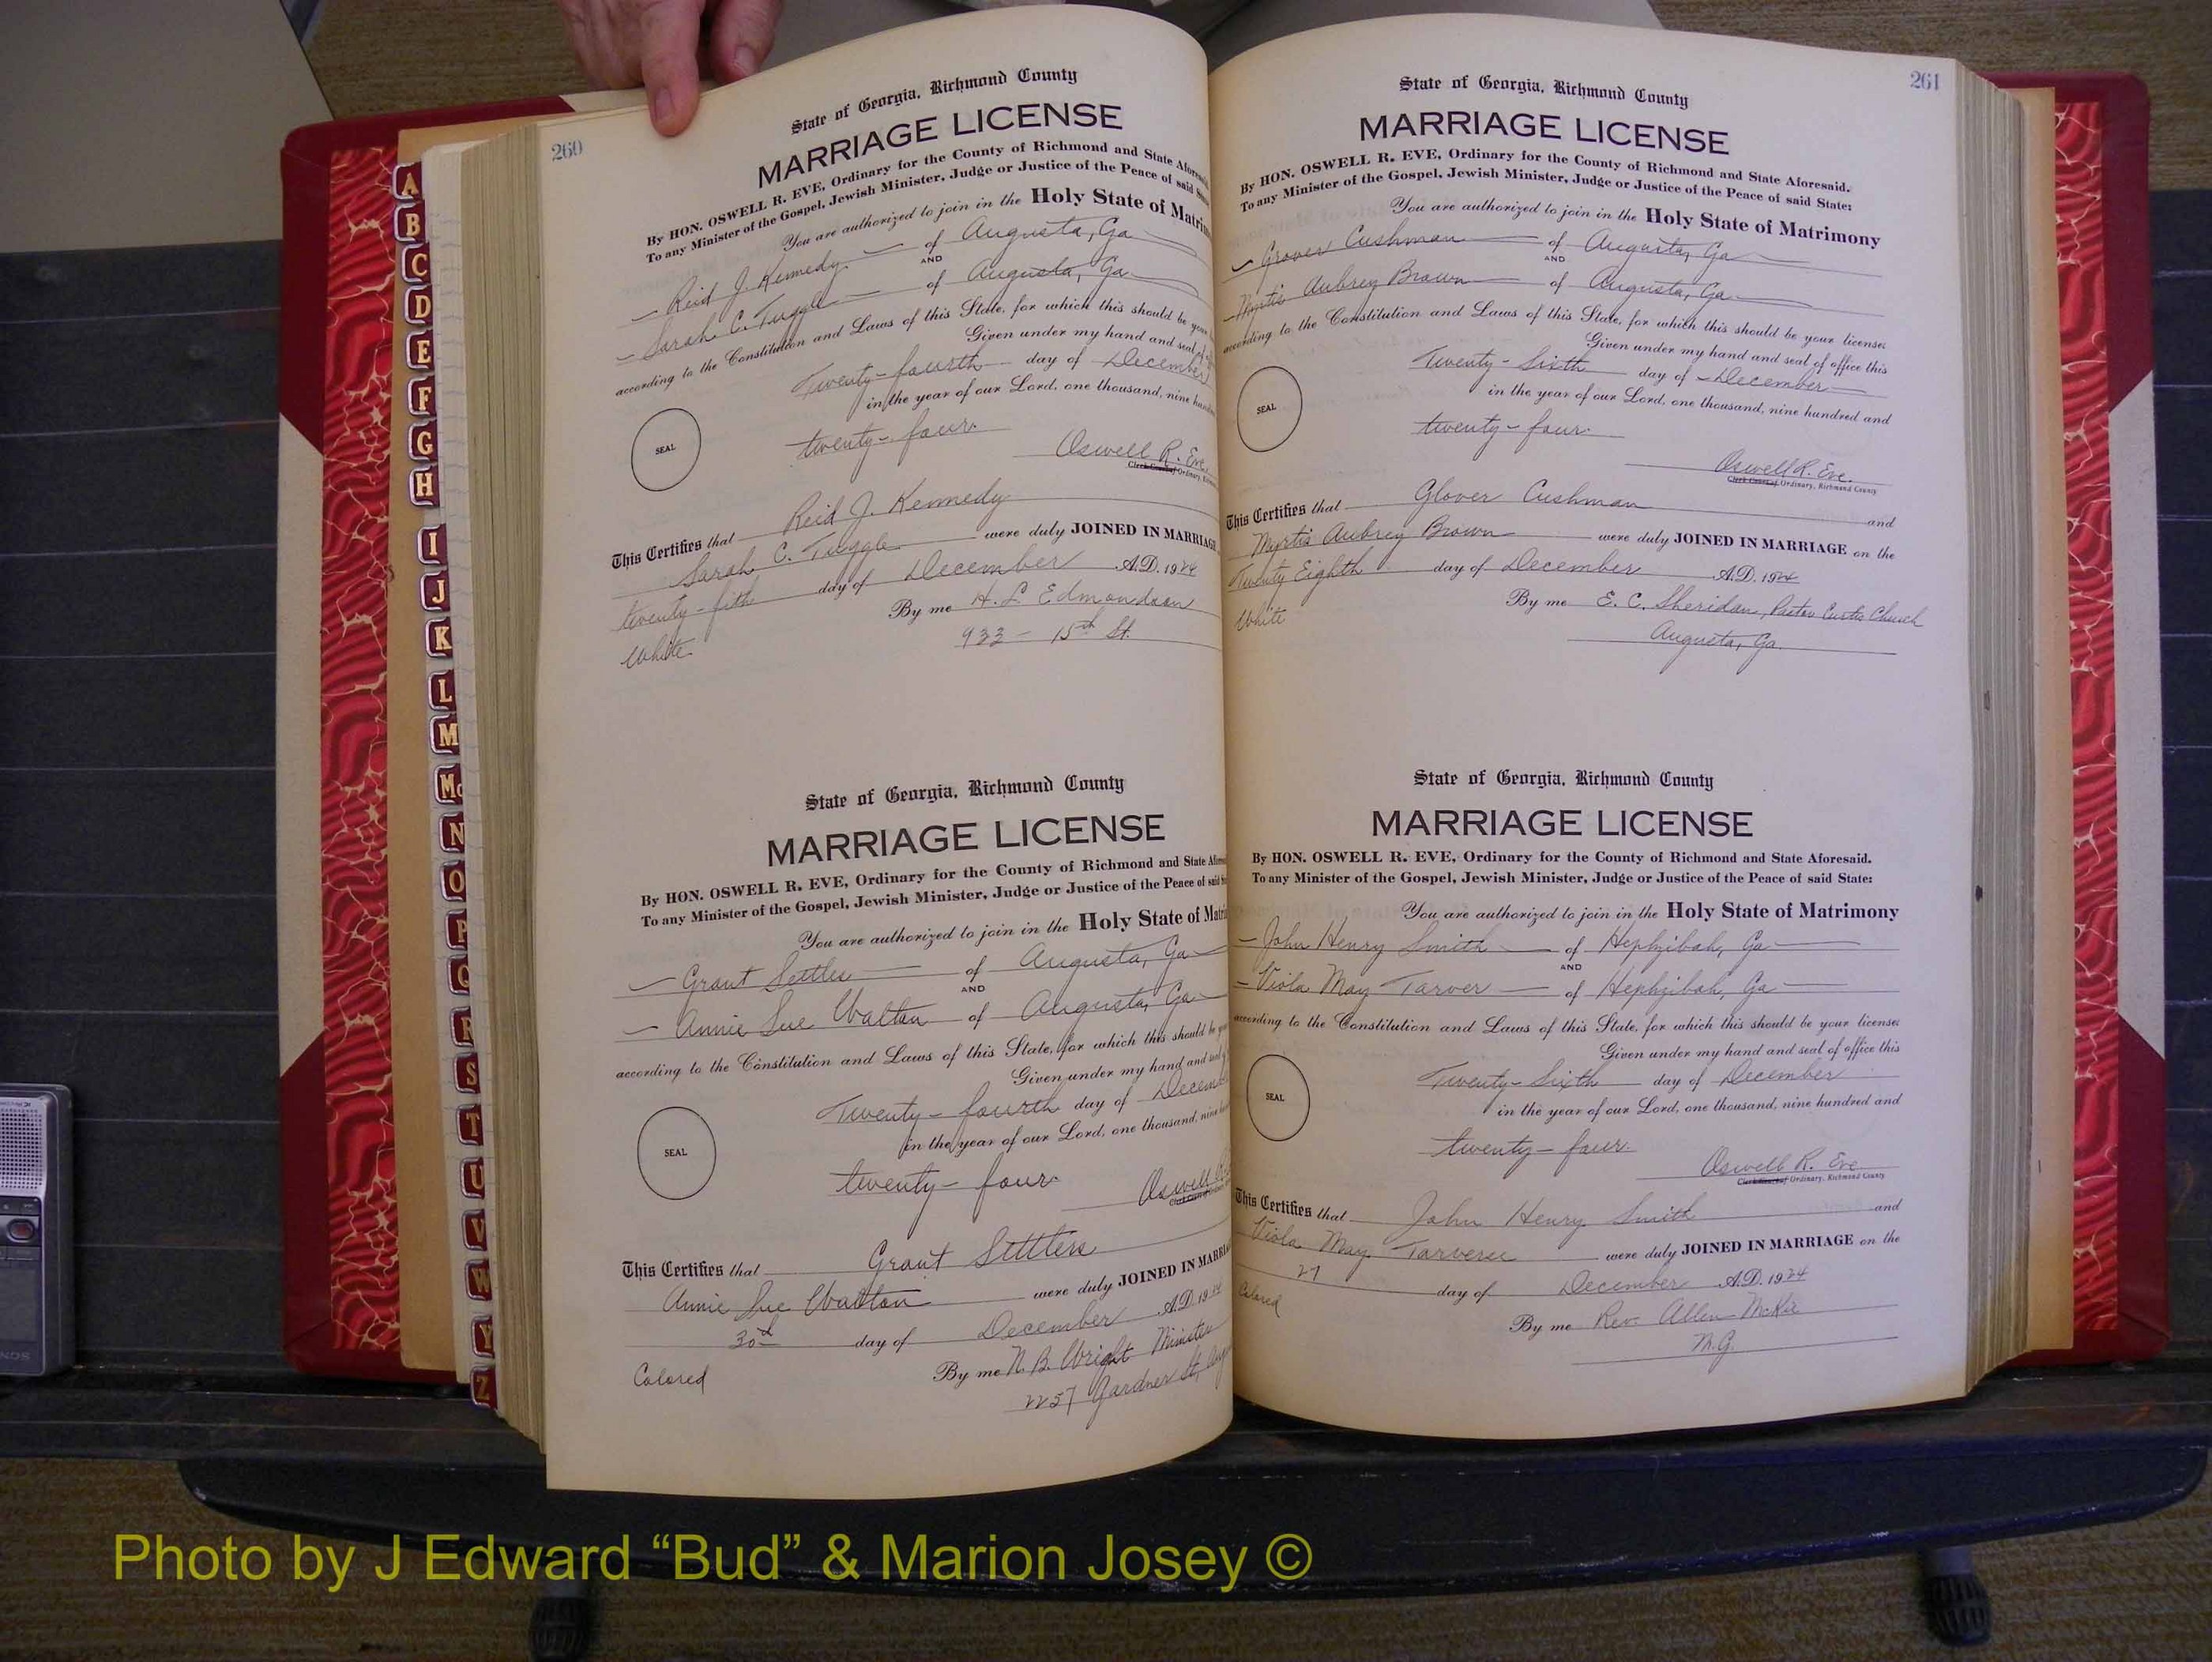 260
State of Georgia, Richmond County
MARRIAGE LICENSE
By HON. OSWELL R. EVE, Ordinary for the County of Richmond and State Aforesaid.
To any Minister of the Gospel, Jewish Minister, Judge or Justice of the Peace of said
You are authorized to join in the Holy State of Matrim
Reid J. Kennedy of Augusta, Ga
AND
Sarah C. Tuggle of Augusta, Ga
according to the Constitution and Laws of this State, for which this should be your
Given under my hand and seal of
Twenty-fourth day of December
in the year of our Lord, one thousand, nine hun
SEAL
twenty-four
Oswell R. Eve
Clerk Court of Ordinary, Rich
This Certifies that Reid J. Kennedy
Sarah C. Tuggle were duly JOINED IN MARRIAGE
twenty-fith day of December A.D. 1924
By me H. L. Edmondson
White 933 - 15th St.
State of Georgia, Richmond County
MARRIAGE LICENSE
By HON. OSWELL R. EVE, Ordinary for the County of Richmond and State Afores
To any Minister of the Gospel, Jewish Minister, Judge or Justice of the Peace of said
You are authorized to join in the Holy State of Matri
Grant Settles of Augusta, Ga
AND
Annie Sue Walton of Augusta, Ga
according to the Constitution and Laws of this State, for which this should be
Given under my hand and seal
Twenty-fourth day of Decem
in the year of our Lord, one thousand, nine
SEAL
twenty-four
Oswell R.
This Certifies that Grant Settles
Annie Sue Walton were duly JOINED IN MARRIA
30th day of December A.D. 1924
By me N. B. Wright Minister
Colored 2257 Gardner St, Aug
261
State of Georgia, Richmond County
MARRIAGE LICENSE
By HON. OSWELL R. EVE, Ordinary for the County of Richmond and State Aforesaid.
To any Minister of the Gospel, Jewish Minister, Judge or Justice of the Peace of said State:
You are authorized to join in the Holy State of Matrimony
Grover Cushman of Augusta, Ga
AND
Myrtis Aubrey Brown of Augusta, Ga
according to the Constitution and Laws of this State, for which this should be your license:
Given under my hand and seal of office this
Twenty-Sixth day of December
in the year of our Lord, one thousand, nine hundred and
SEAL
twenty-four
Oswell R. Eve.
Clerk Court of Ordinary, Richmond County
This Certifies that Glover Cushman and
Myrtis Aubrey Brown were duly JOINED IN MARRIAGE on the
Twenty Eighth day of December A.D. 1924
By me E. C. Sheridan, Pastor Curtis Church
White Augusta, Ga.
State of Georgia, Richmond County
MARRIAGE LICENSE
By HON. OSWELL R. EVE, Ordinary for the County of Richmond and State Aforesaid.
To any Minister of the Gospel, Jewish Minister, Judge or Justice of the Peace of said State:
You are authorized to join in the Holy State of Matrimony
John Henry Smith of Hephzibah, Ga
AND
Viola May Tarver of Hephzibah, Ga
according to the Constitution and Laws of this State, for which this should be your license:
Given under my hand and seal of office this
Twenty-Sixth day of December
in the year of our Lord, one thousand, nine hundred and
SEAL
twenty-four
Oswell R. Eve
Clerk Court of Ordinary, Richmond County
This Certifies that John Henry Smith and
Viola May Tarver were duly JOINED IN MARRIAGE on the
27 day of December A.D. 1924
Colored By me Rev. Allen McKie
M.G.
A
B
C
D
E
F
G
H
I
J
K
L
M
Mc
N
O
P
Q
R
S
T
U
V
W
Y
Z
Photo by J Edward “Bud” & Marion Josey ©